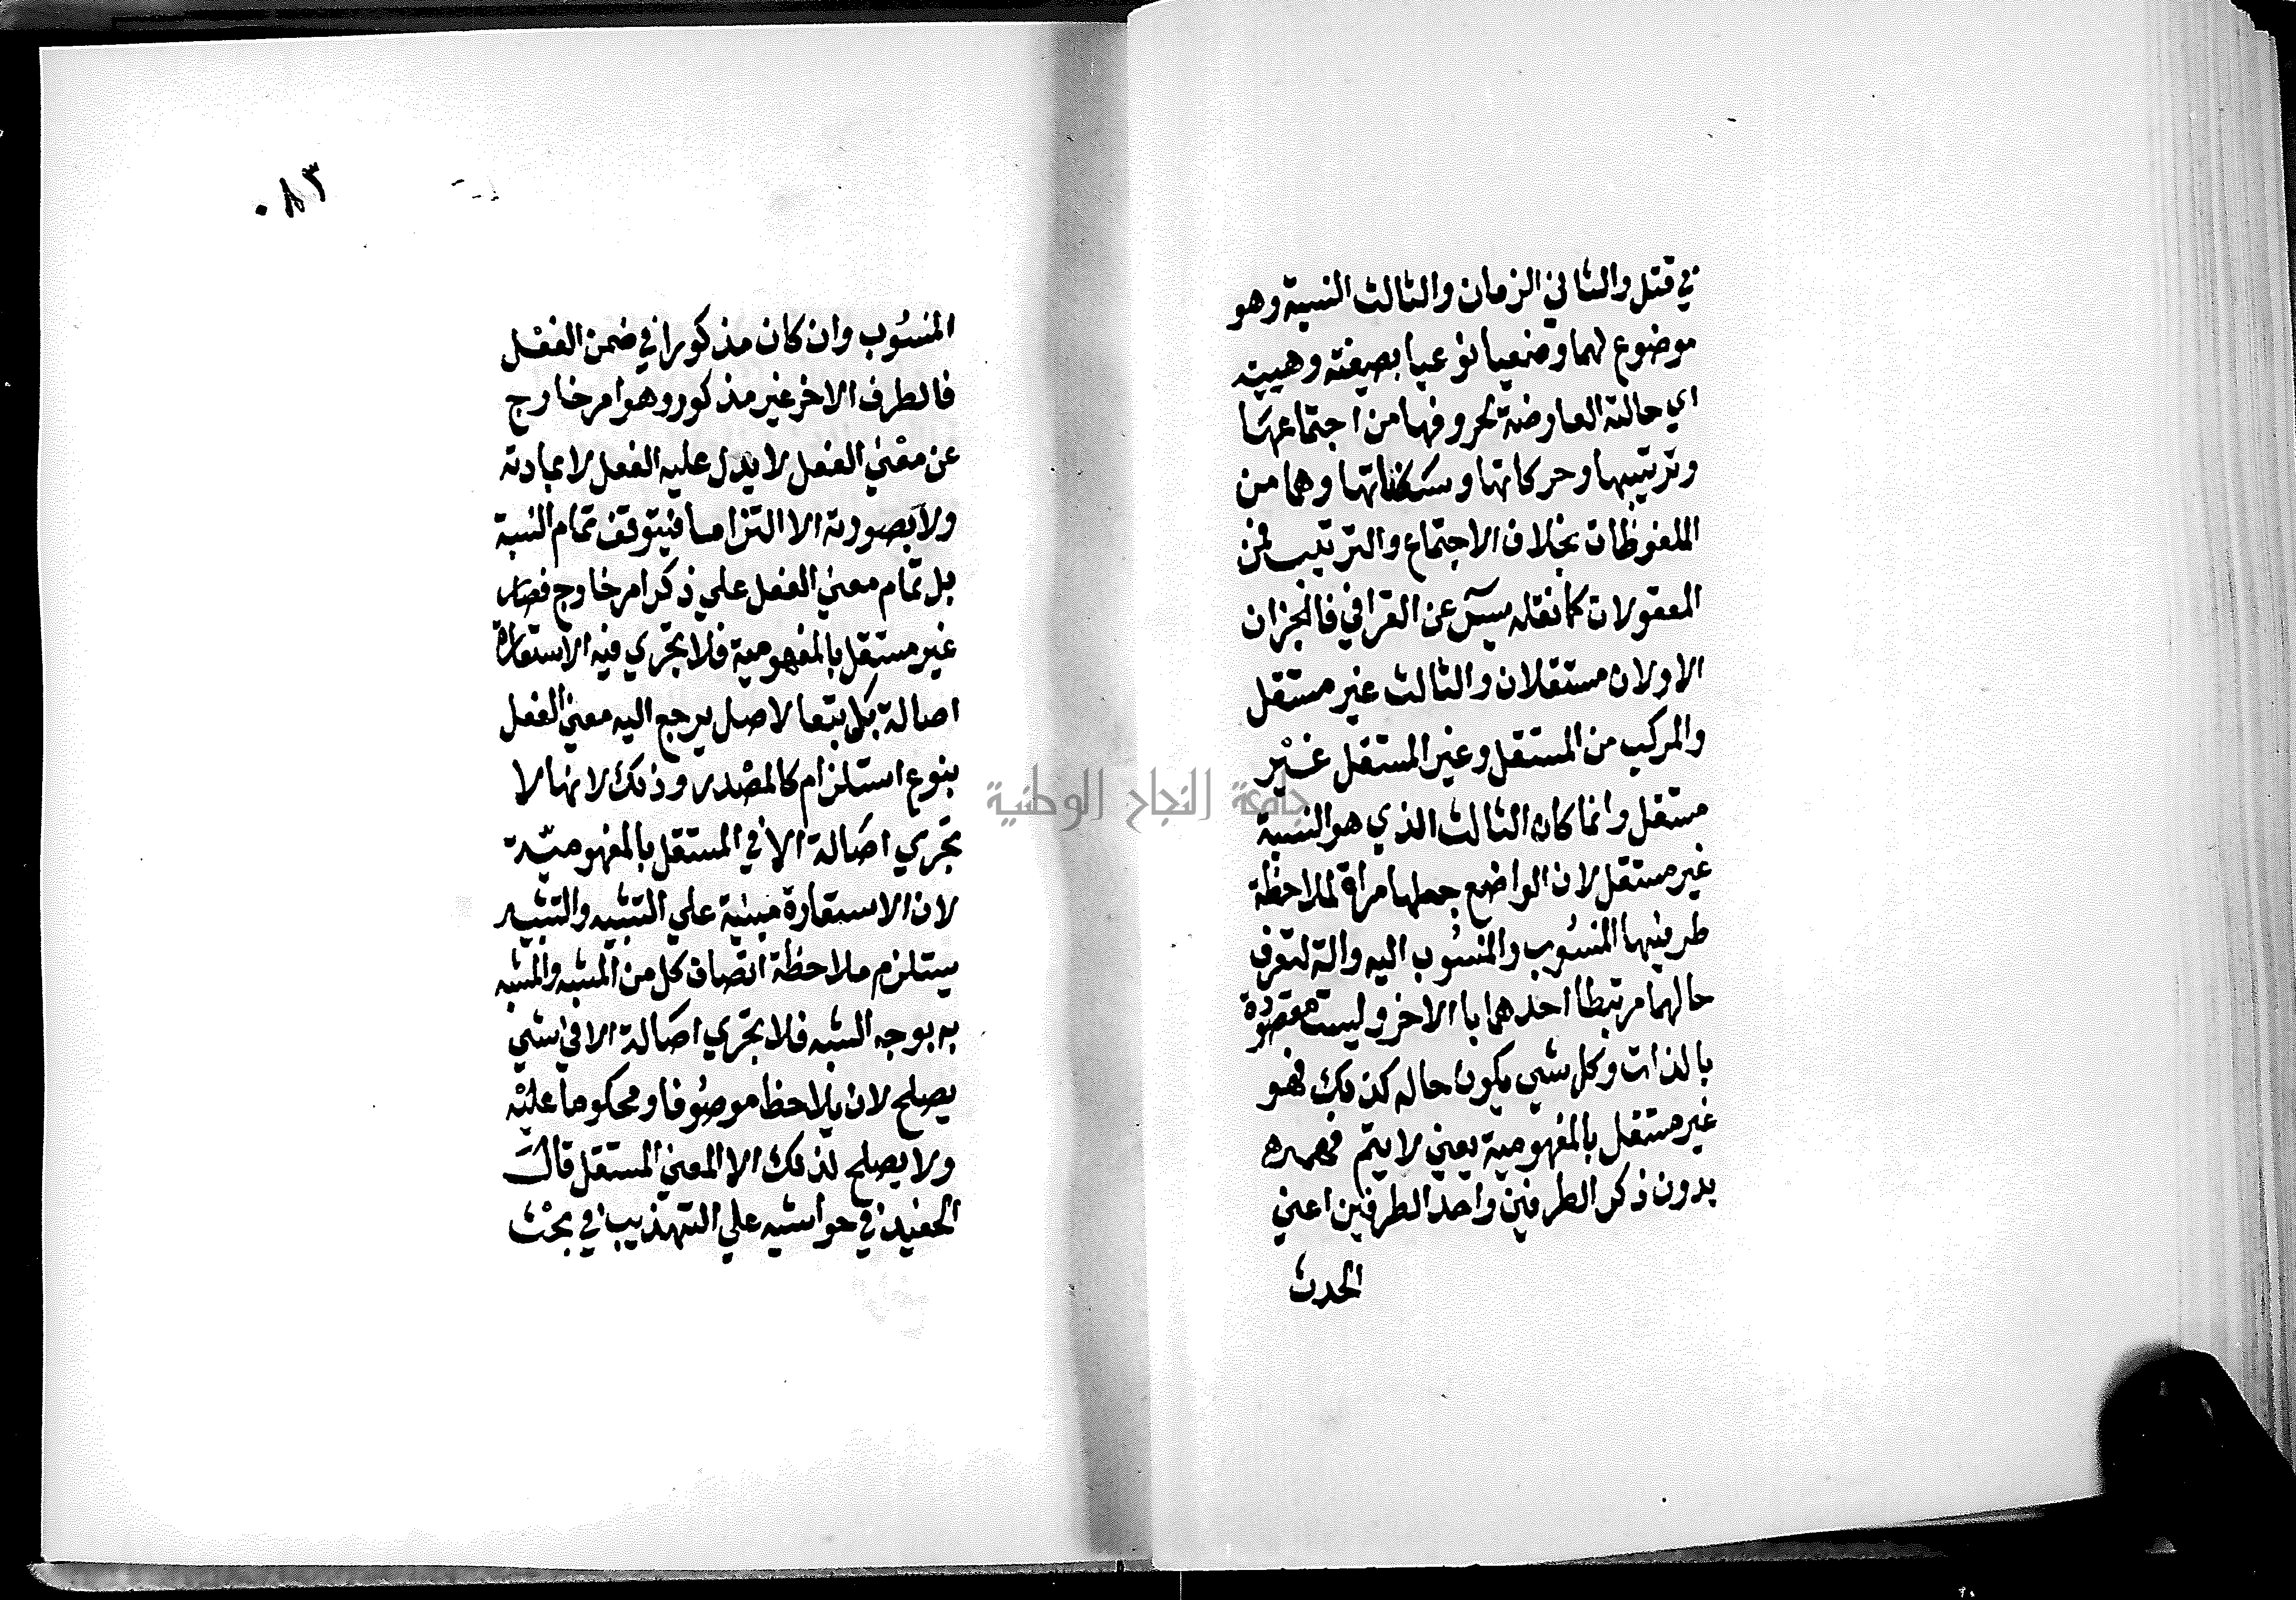 في قتل والثاني الزمان والثالث النسبة وهو
موضوع لهما وضعيا نوعيا بصيغته وهيئته
اي حالته العارضة لحروفها من اجتماعها
وترتيبها وحركاتها وسكناتها وهما من
الملفوظات بخلاف الاجتماع والترتيب فمن
المعقولات كما نقله يس عن القرافي فالجزان
الاولان مستقلان والثالث غير مستقل
والمركب من المستقل وغير المستقل غير
مستقل وانما كان الثالث الذي هو النسبة
غير مستقل لان الواضع جعلها مراة لملاحظة
طرفيها المنسوب والمنسوب اليه والة لتعرف
حالهما مرتبطا احدهما بالاخر وليست مقصودة
بالذات وكل شي يكون حاله كذلك فهو
غير مستقل بالمفهومية يعني لا يتم فهمه
بدون ذكر الطرفين واحد الطرفين اعني
الحدث
٠٨٣
المنسوب وان كان مذكورا في ضمن الفعل
فالطرف الاخر غير مذكور وهو امر خارج
عن معني الفعل لا يدل عليه الفعل لا بمادته
ولا بصورته الا التزاما فيتوقف تمام النسبة
بل تمام معني الفعل علي ذكر امر خارج فصار
غير مستقل بالمفهومية فلا تجري فيه الاستعارة
اصالة بل تبعا لاصل يرجع اليه معني الفعل
بنوع استلزام كالمصدر وذلك لانها لا
تجري اصالة الا في المستقل بالمفهومية
لان الاستعارة مبنية علي التشبيه والتشبيه
يستلزم ملاحظة اتصاف كل من المشبه والمشبه
به بوجه الشبه فلا تجري اصالة الا في شي
يصلح لان يلاحظ موصوفا ومحكوما عليه
ولا يصلح لذلك الا المعني المستقل قال
الحفيد في حواشيه علي التهذيب في بحث
جامعة النجاح الوطنية